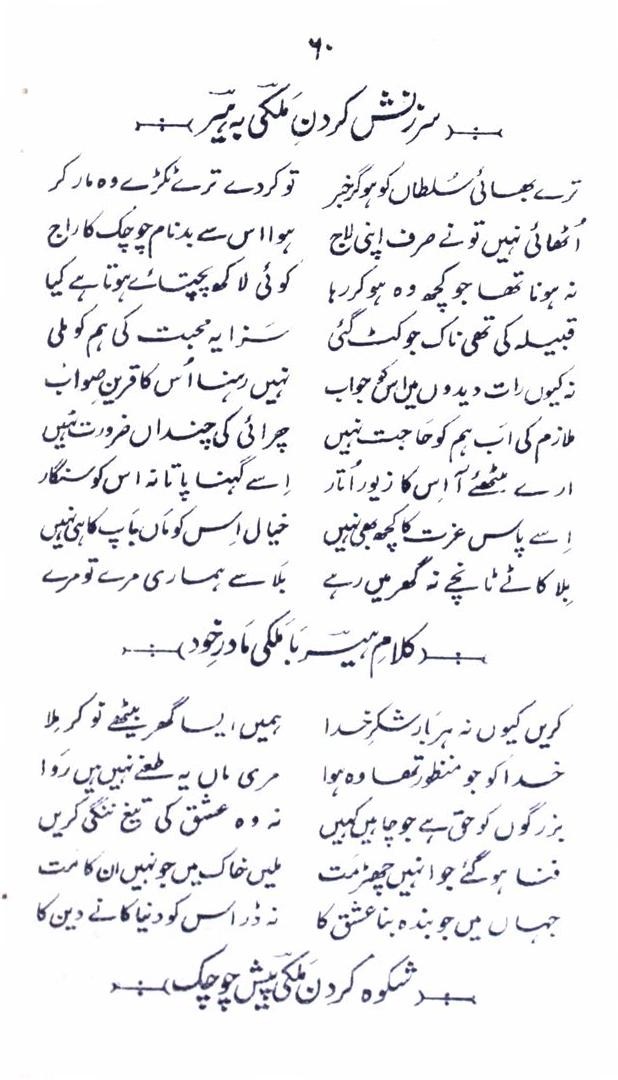 ۶۰
سرزنش کردنِ مَلکی بہ ہیر
ترے بھائی سُلطاں کو ہو گر خبر تو کر دے ترے ٹکڑے وہ مار کر
اُٹھائی نہیں تو نے صرف اپنی لاج ہوا اس سے بدنام چوچک کا راج
نہ ہونا تھا جو کچھ وہ ہو کر رہا کوئی لاکھ پچھتائے ہوتا ہے کیا
قبیلہ کی تھی ناک جو کٹ گئی سَزا یہ محبت کی ہم کو ملی
نہ کیوں رات دیدوں میں اس کو جواب نہیں رہنا اُس کا قرینِ صواب
ملازم کی اَب ہم کو حاجت نہیں چرائی کی چنداں ضرورت نہیں
ارے مٹھئے آ اِس کا زیور اُتار اِسے گہنا پاتا نہ اس کو سنگار
اِسے پاس عزت کا کچھ بھی نہیں خیال اِس کو ماں باپ کا ہی نہیں
بِلا کاٹے ٹانچے نہ گھر میں رہے بَلا سے ہماری مرے تو مرے
کلامِ ہیر بَا مَلکی مَادرِ خود
کریں کیوں نہ ہر بَار شکرِ خدا ہمیں ایسا گھر بیٹھے نوکر مِلا
خدا کو جو منظور تھا وہ ہوا مری ماں یہ طعنے نہیں ہیں رَوا
بزرگوں کو حق ہے جو چاہیں کہیں نہ وہ عشق کی تیغ ننگی کریں
فنا ہو گئے جو انہیں چھیڑ مت ملیں خاک میں جو نہیں ان کا مت
جہاں میں جو بندہ بنا عشق کا نہ ڈر اس کو دنیا کا نے دین کا
شکوہ کردن مَلکی پیش چوچک